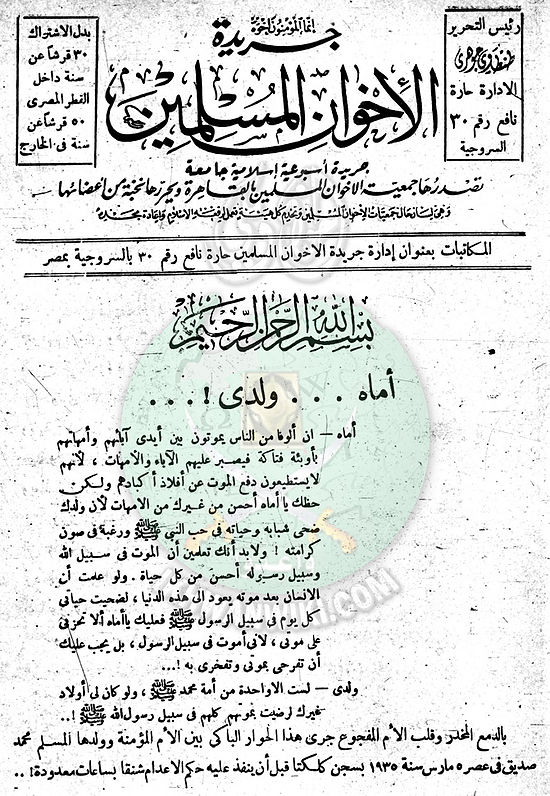 إنما المؤمنون إخوة
جريدة
الإخوان المسلمين
رئيس التحرير
طنطاوى جوهرى
الادارة حارة
نافع رقم ٣٠
السروجية
بدل الاشتراك
٣٠ قرشاً عن
سنة داخل
القطر المصرى
٥٠ قرشاً عن
سنة فى الخارج
جريدة أسبوعية إسلامية جامعة
تصدرها جمعية الاخوان المسلمين بالقاهرة ويحررها نخبة من أعضائها
وهى لسان حال جمعيات الاخوان المسلمين وتخدم كل هيئة تعمل لرفعة الاسلام وإعادة مجده
المكاتبات بعنوان إدارة جريدة الاخوان المسلمين حارة نافع رقم ٣٠ بالسروجية بمصر
بسم الله الرحمن الرحيم
أماه . . . ولدى ! . . .
أماه — ان ألوفا من الناس يموتون بين أيدى آبائهم وأمهاتهم
بأوبئة فتاكة فيصبر عليهم الآباء والأمهات ، لأنهم
لا يستطيعون دفع الموت عن أفلاذ أكبادهم ولكن
حظك يا أماه أحسن من غيرك من الامهات لأن ولدك
ضحى شبابه وحياته فى حب النبي ﷺ ورغبة فى صون
كرامته ! ولابد أنك تعلمين أن الموت فى سبيل الله
وسبيل رسوله أحسن من كل حياة . ولو علمت أن
الانسان بعد موته يعود الى هذه الدنيا ، لضحيت حياتى
كل يوم فى سبيل الرسول ﷺ فعليك يا أماه ألا تحزنى
على موتى ، لانى أموت فى سبيل الرسول ، بل يجب عليك
أن تفرحى بموتى وتفخرى به !...
ولدى — لست الا واحدة من أمة محمد ﷺ ، ولو كان لى أولاد
غيرك لرضيت بموتهم كلهم فى سبيل رسول الله ﷺ !..
بالدمع المنحدر وقلب الأم المفجوع جرى هذا الحوار الباكى بين الأم المؤمنة وولدها المسلم محمد
صديق فى عصر ٥ مارس سنة ١٩٣٥ بسجن كلكتا قبل أن ينفذ عليه حكم الاعدام شنقا بساعات معدودة ! ..